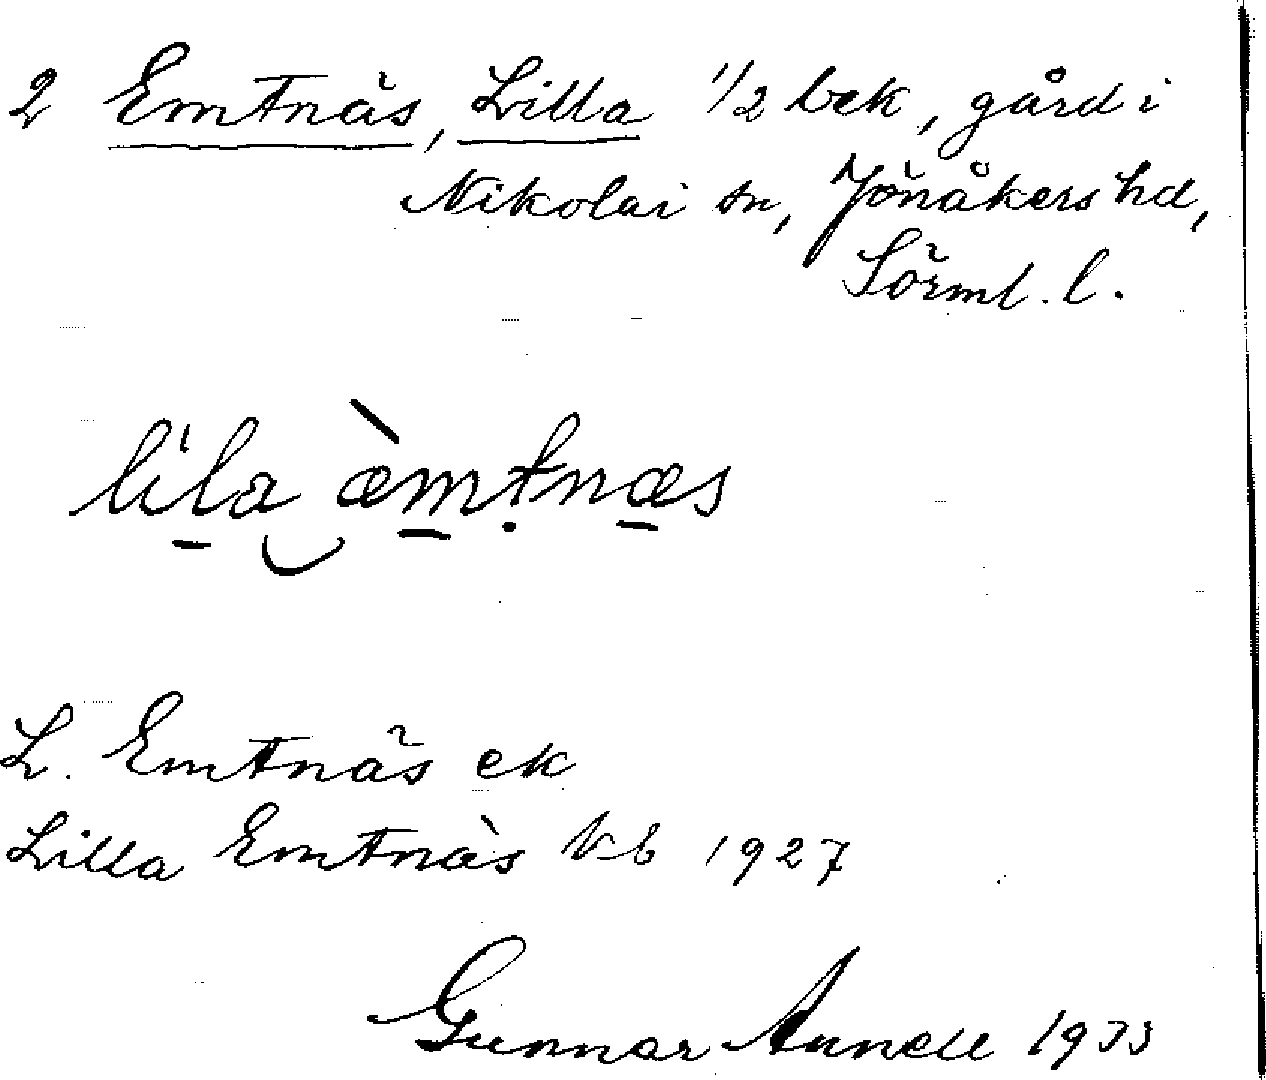 2 Emtnäs, Lilla 1/2 bek, gård i
Nikolai sn, Jönåkers hd,
Sörml. l.
lila æ̀mtnæs
L. Emtnäs ek
Lilla Emtnäs kb 1927
Gunnar Annell 1933